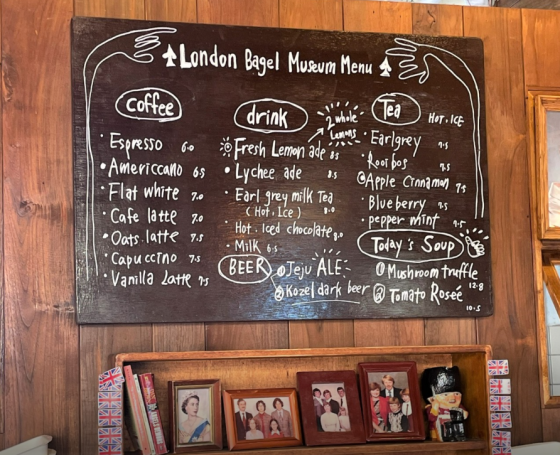 London Bagel Museum Menu
coffee
Espresso 6.0
Americcano 6.5
Flat white 7.0
Cafe latte 7.0
Oats latte 7.5
Capuccino 7.5
Vanilla Latte 7.5
drink
2 whole
lemons
Fresh Lemon ade 8.5
Lychee ade 8.5
Earl grey milk Tea
(Hot, Ice) 8.0
Hot. Iced chocolate 8.0
Milk 6.5
BEER
① Jeju ALE
② Kozel dark beer
Tea
HOT, ICE
Earlgrey 7.5
Rooibos 7.5
Apple Cinnamon 7.5
Blueberry 7.5
pepper mint 7.5
Today's Soup
① Mushroom truffle
12.8
② Tomato Roseé
10.5